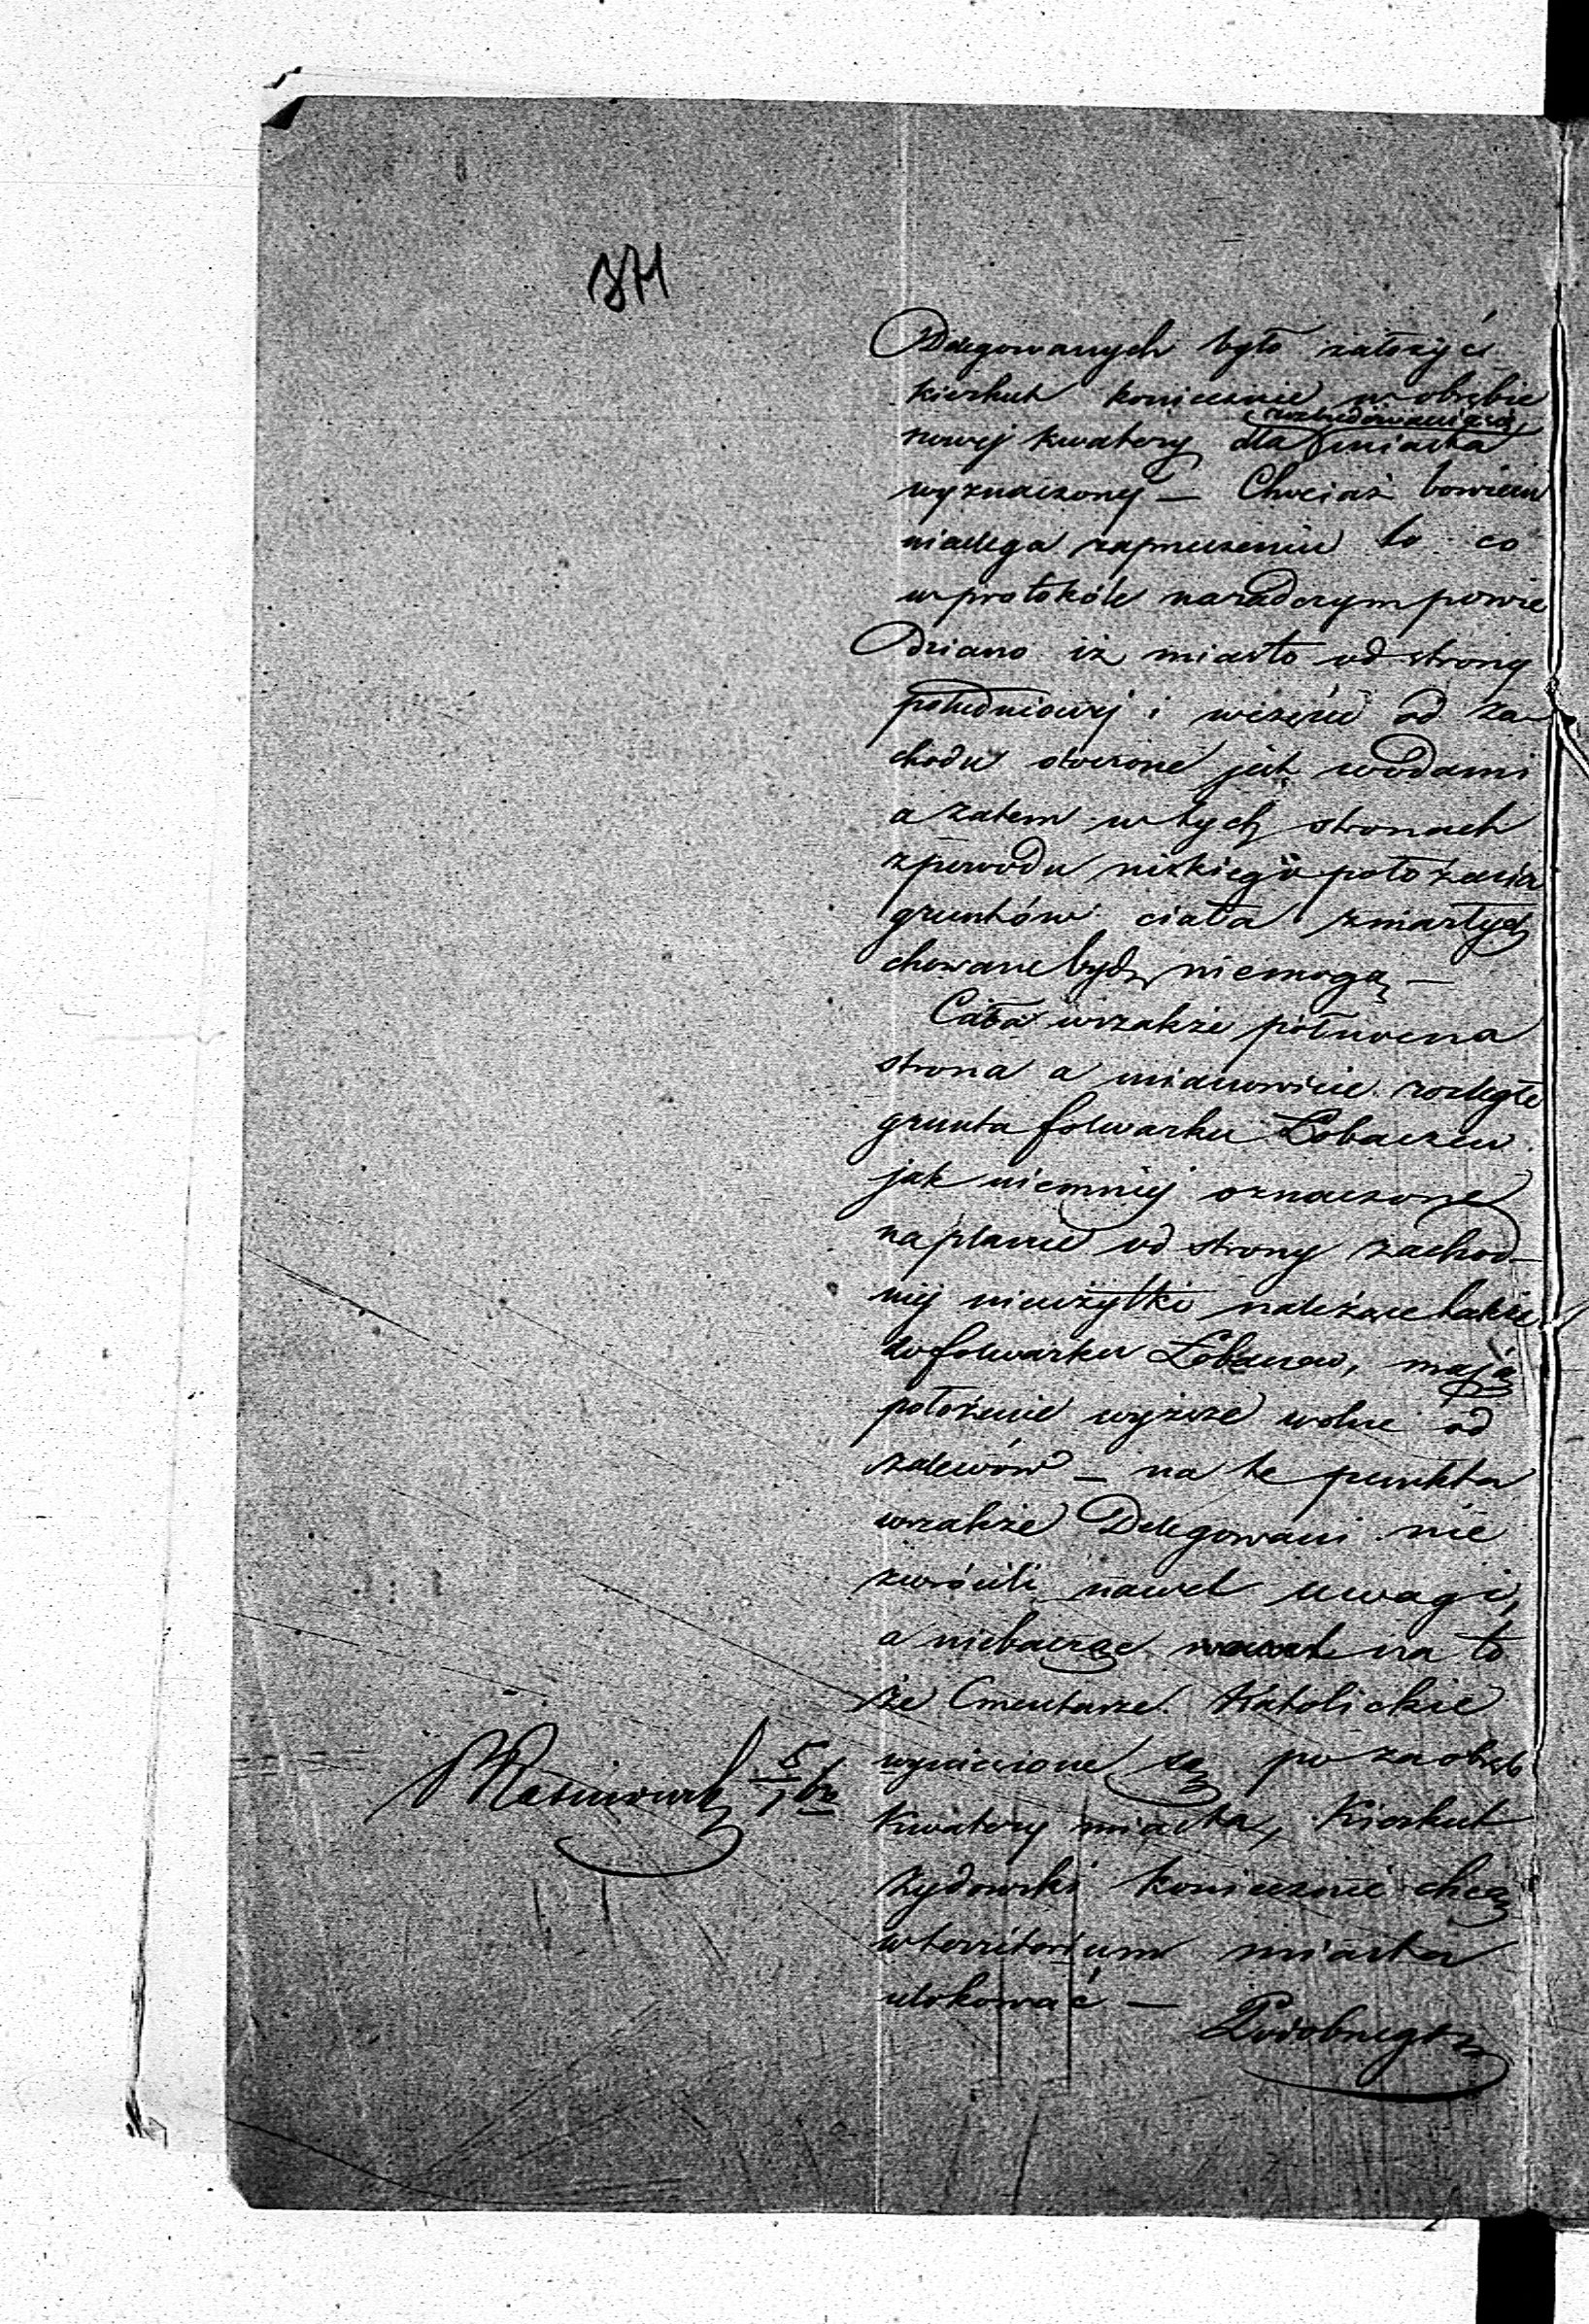 371
Delegowanych było założyć
kierkut koniecznie w obrębie
rozbudowania się
nowej kwatery dla miasta
wyznaczonej — Chociaż bowiem
nieulega zaprzeczeniu to co
w protokóle naradczym powie
dziano iż miasto od strony
południowej i wczęści od za-
chodu otoczone jest wodami
a zatem w tych stronach
zpowodu niskiego położenia
gruntów ciała zmarłych
chowane bydź niemogą —
Cała wszakże północna
strona a mianowicie rozległe
grunta folwarku Łobaczew
jak niemniej oznaczone
na planie od strony zachod-
niej nieużytki należące także
do folwarku Łobaczew, mają
położenie wyższe wolne od
zalewów — na te punkta
wszakże Delegowani nie
zwrócili nawet uwagi,
a niebacząc nawet na to
że Cmentarze Katolickie
wyniesione są po za obręb
Kwatery miasta, Kierkut
żydowski koniecznie chcą
w territorium miasta
ulokować —
Podobnego
5/1